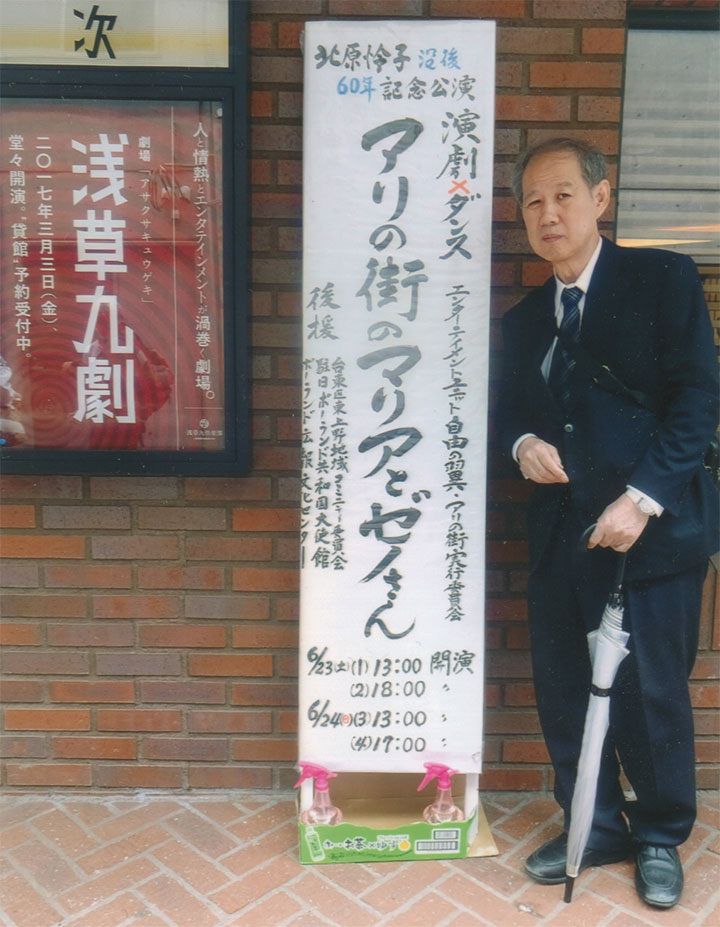 次
人と情熱とエンタテインメントが渦巻く劇場。
劇場「アサクサキュウゲキ」
浅草九劇
二〇一七年三月三日(金)、
堂々開演。"貸館"予約受付中。
北原怜子没後
60年記念公演
演劇×ダンス
アリの街のマリアとゼノさん
エンターテイメントユニット自由の翼・アリの街実行委員会
後援
台東区東上野地域コミュニティ委員会
駐日ポーランド共和国大使館
ポーランド広報文化センター
6/23(土)(1)13:00開演
(2)18:00 〃
6/24(日)(3)13:00 〃
(4)17:00 〃
お〜いお茶×ゆず